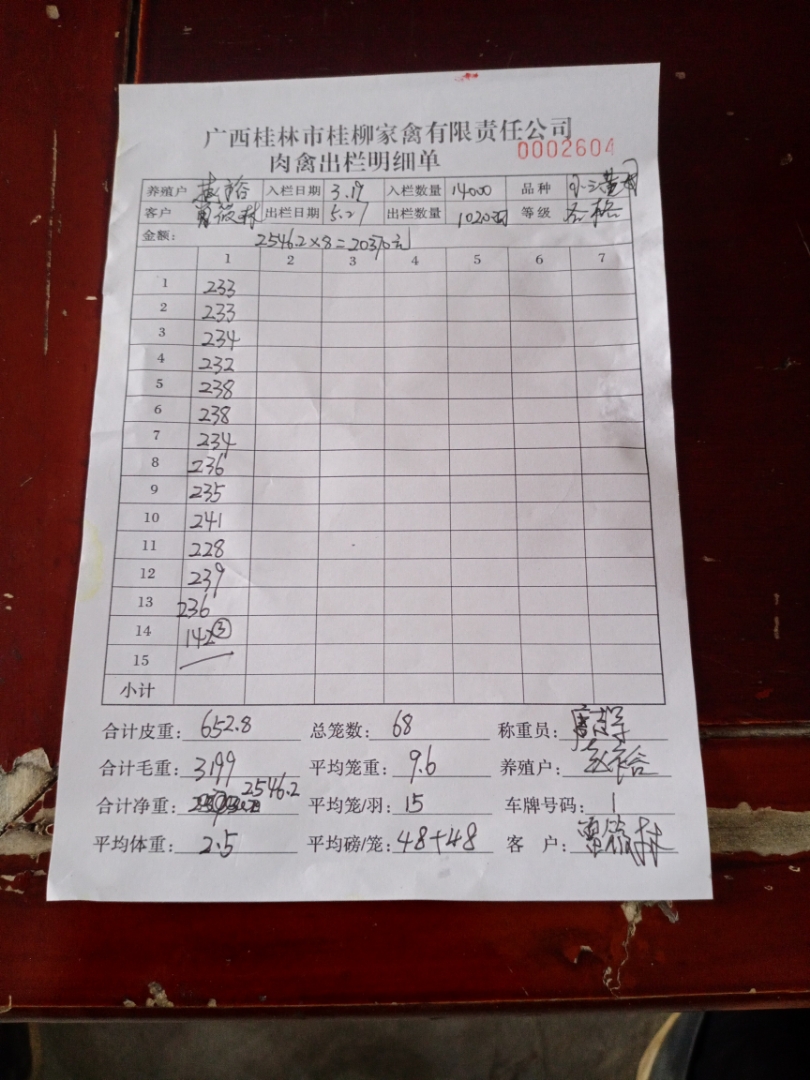 广西桂林市桂柳家禽有限责任公司
肉禽出栏明细单 0002604
养殖户 裕 入栏日期 3.17 入栏数量 14000 品种
客户 筱林 出栏日期 5.27 出栏数量 1020羽 等级 合格
金额: 2546.2×8=20370元
1 2 3 4 5 6 7
1 233
2 233
3 234
4 232
5 238
6 238
7 234
8 236
9 235
10 241
11 228
12 239
13 236
14 142③
15
小计
合计皮重: 652.8 总笼数: 68 称重员:
合计毛重: 3199 平均笼重: 9.6 养殖户: 裕
合计净重: 2546.2 平均笼/羽: 15 车牌号码: 1
平均体重: 2.5 平均磅/笼: 48+48 客户: 筱林